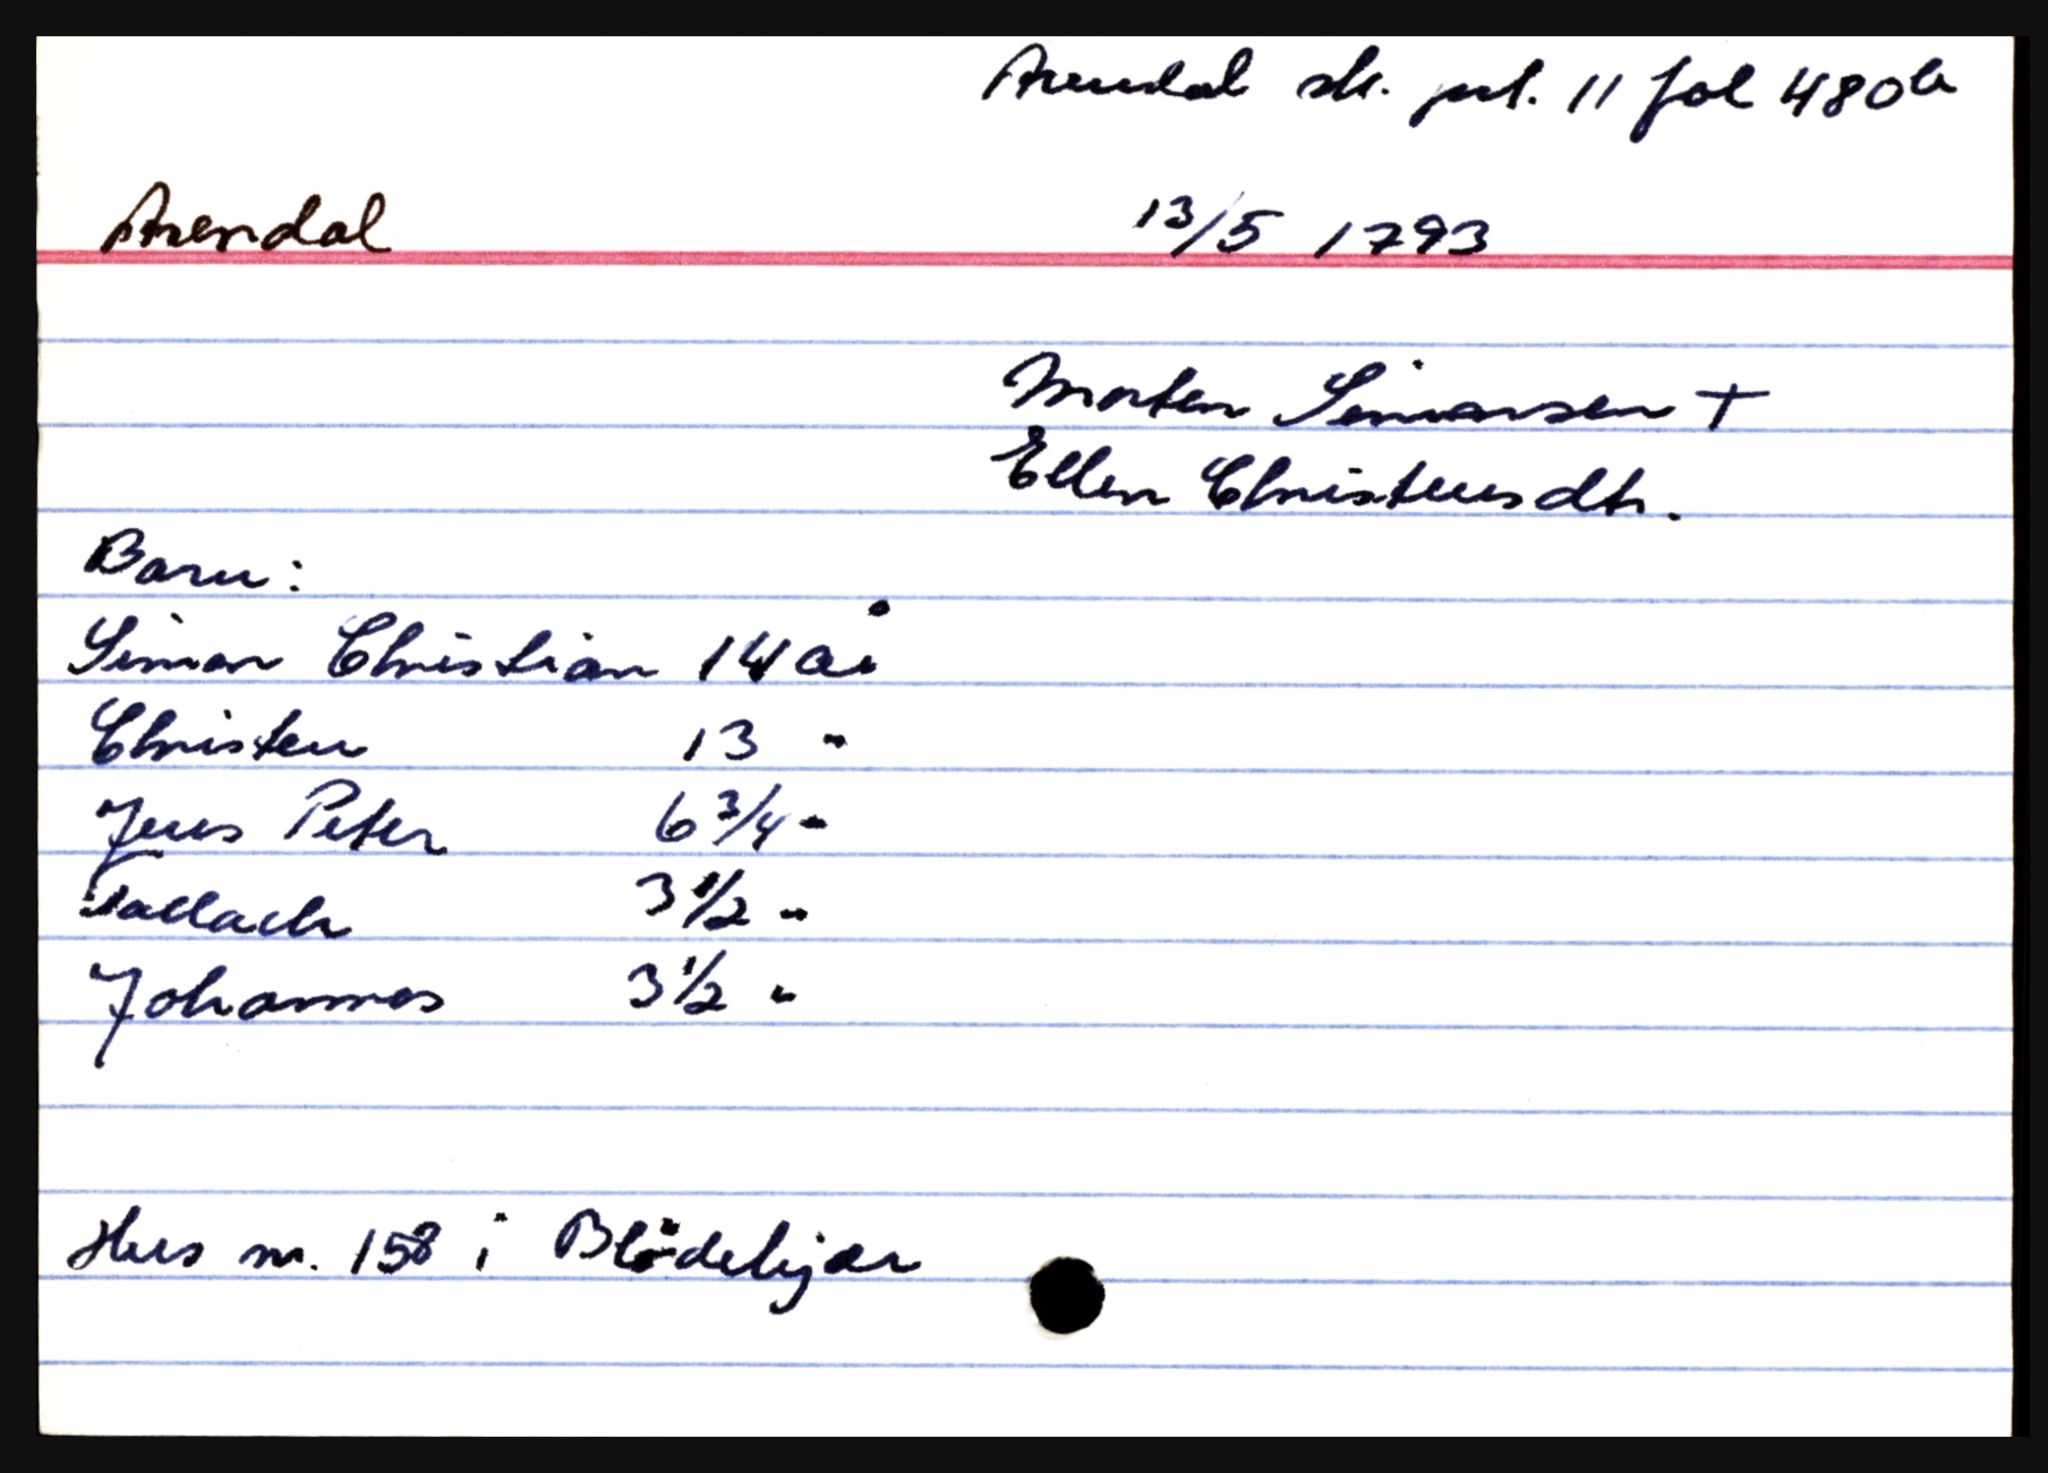 Arendal sk. prt. 11 fol 480b
Arendal 13/5 1793
Morten Simonsen +
Ellen Christensdtr.
Barn:
Simon Christian 14 år
Christen 13 "
Jens Peter 6 3/4 "
Tallach 3 1/2 "
Johannes 3 1/2 "
Hus nr. 158 i Blödekjær